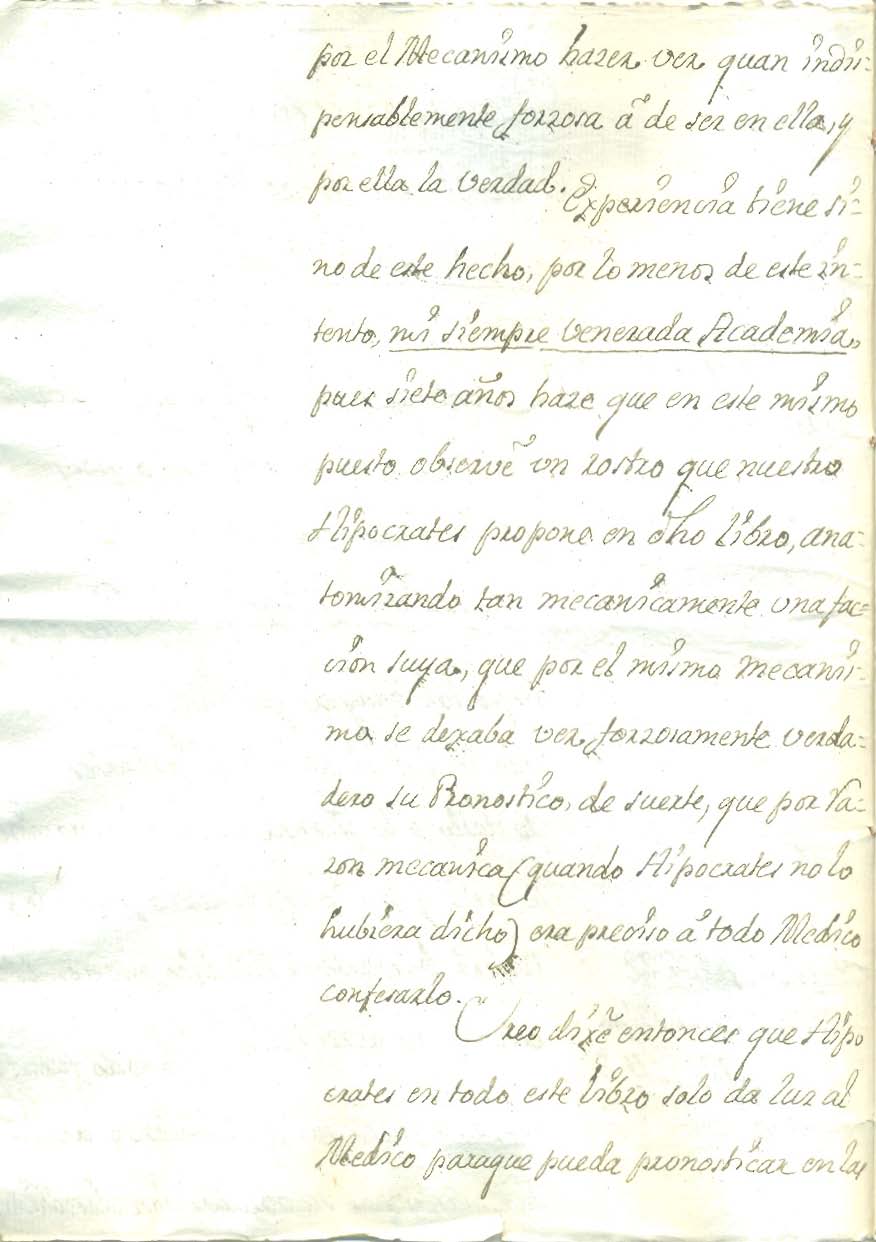 por el Mecanismo hazer ver quan indis=
pensablemente forzosa â de ser en ella, y
por ella la verdad.
Experiencia tiene si=
no de este hecho, por lo menos de este in=
tento, mi siempre venerada Academia,
pues siete años haze que en este mismo
puesto observê un rostro que nuestro
Hipocrates propone en dho libro, ana=
tomizando tan mecanicamente una fac=
cion suya, que por el mismo mecanis=
mo se dexaba ver forzosamente verda=
dero su Pronostico, de suerte, que por ra=
zon mecanica (quando Hipocrates no lo
hubiera dicho) era preciso â todo Medico
confesarlo.
Creo dixê entonces que Hipo
crates en todo este libro solo da luz al
Medico paraque pueda pronosticar en las